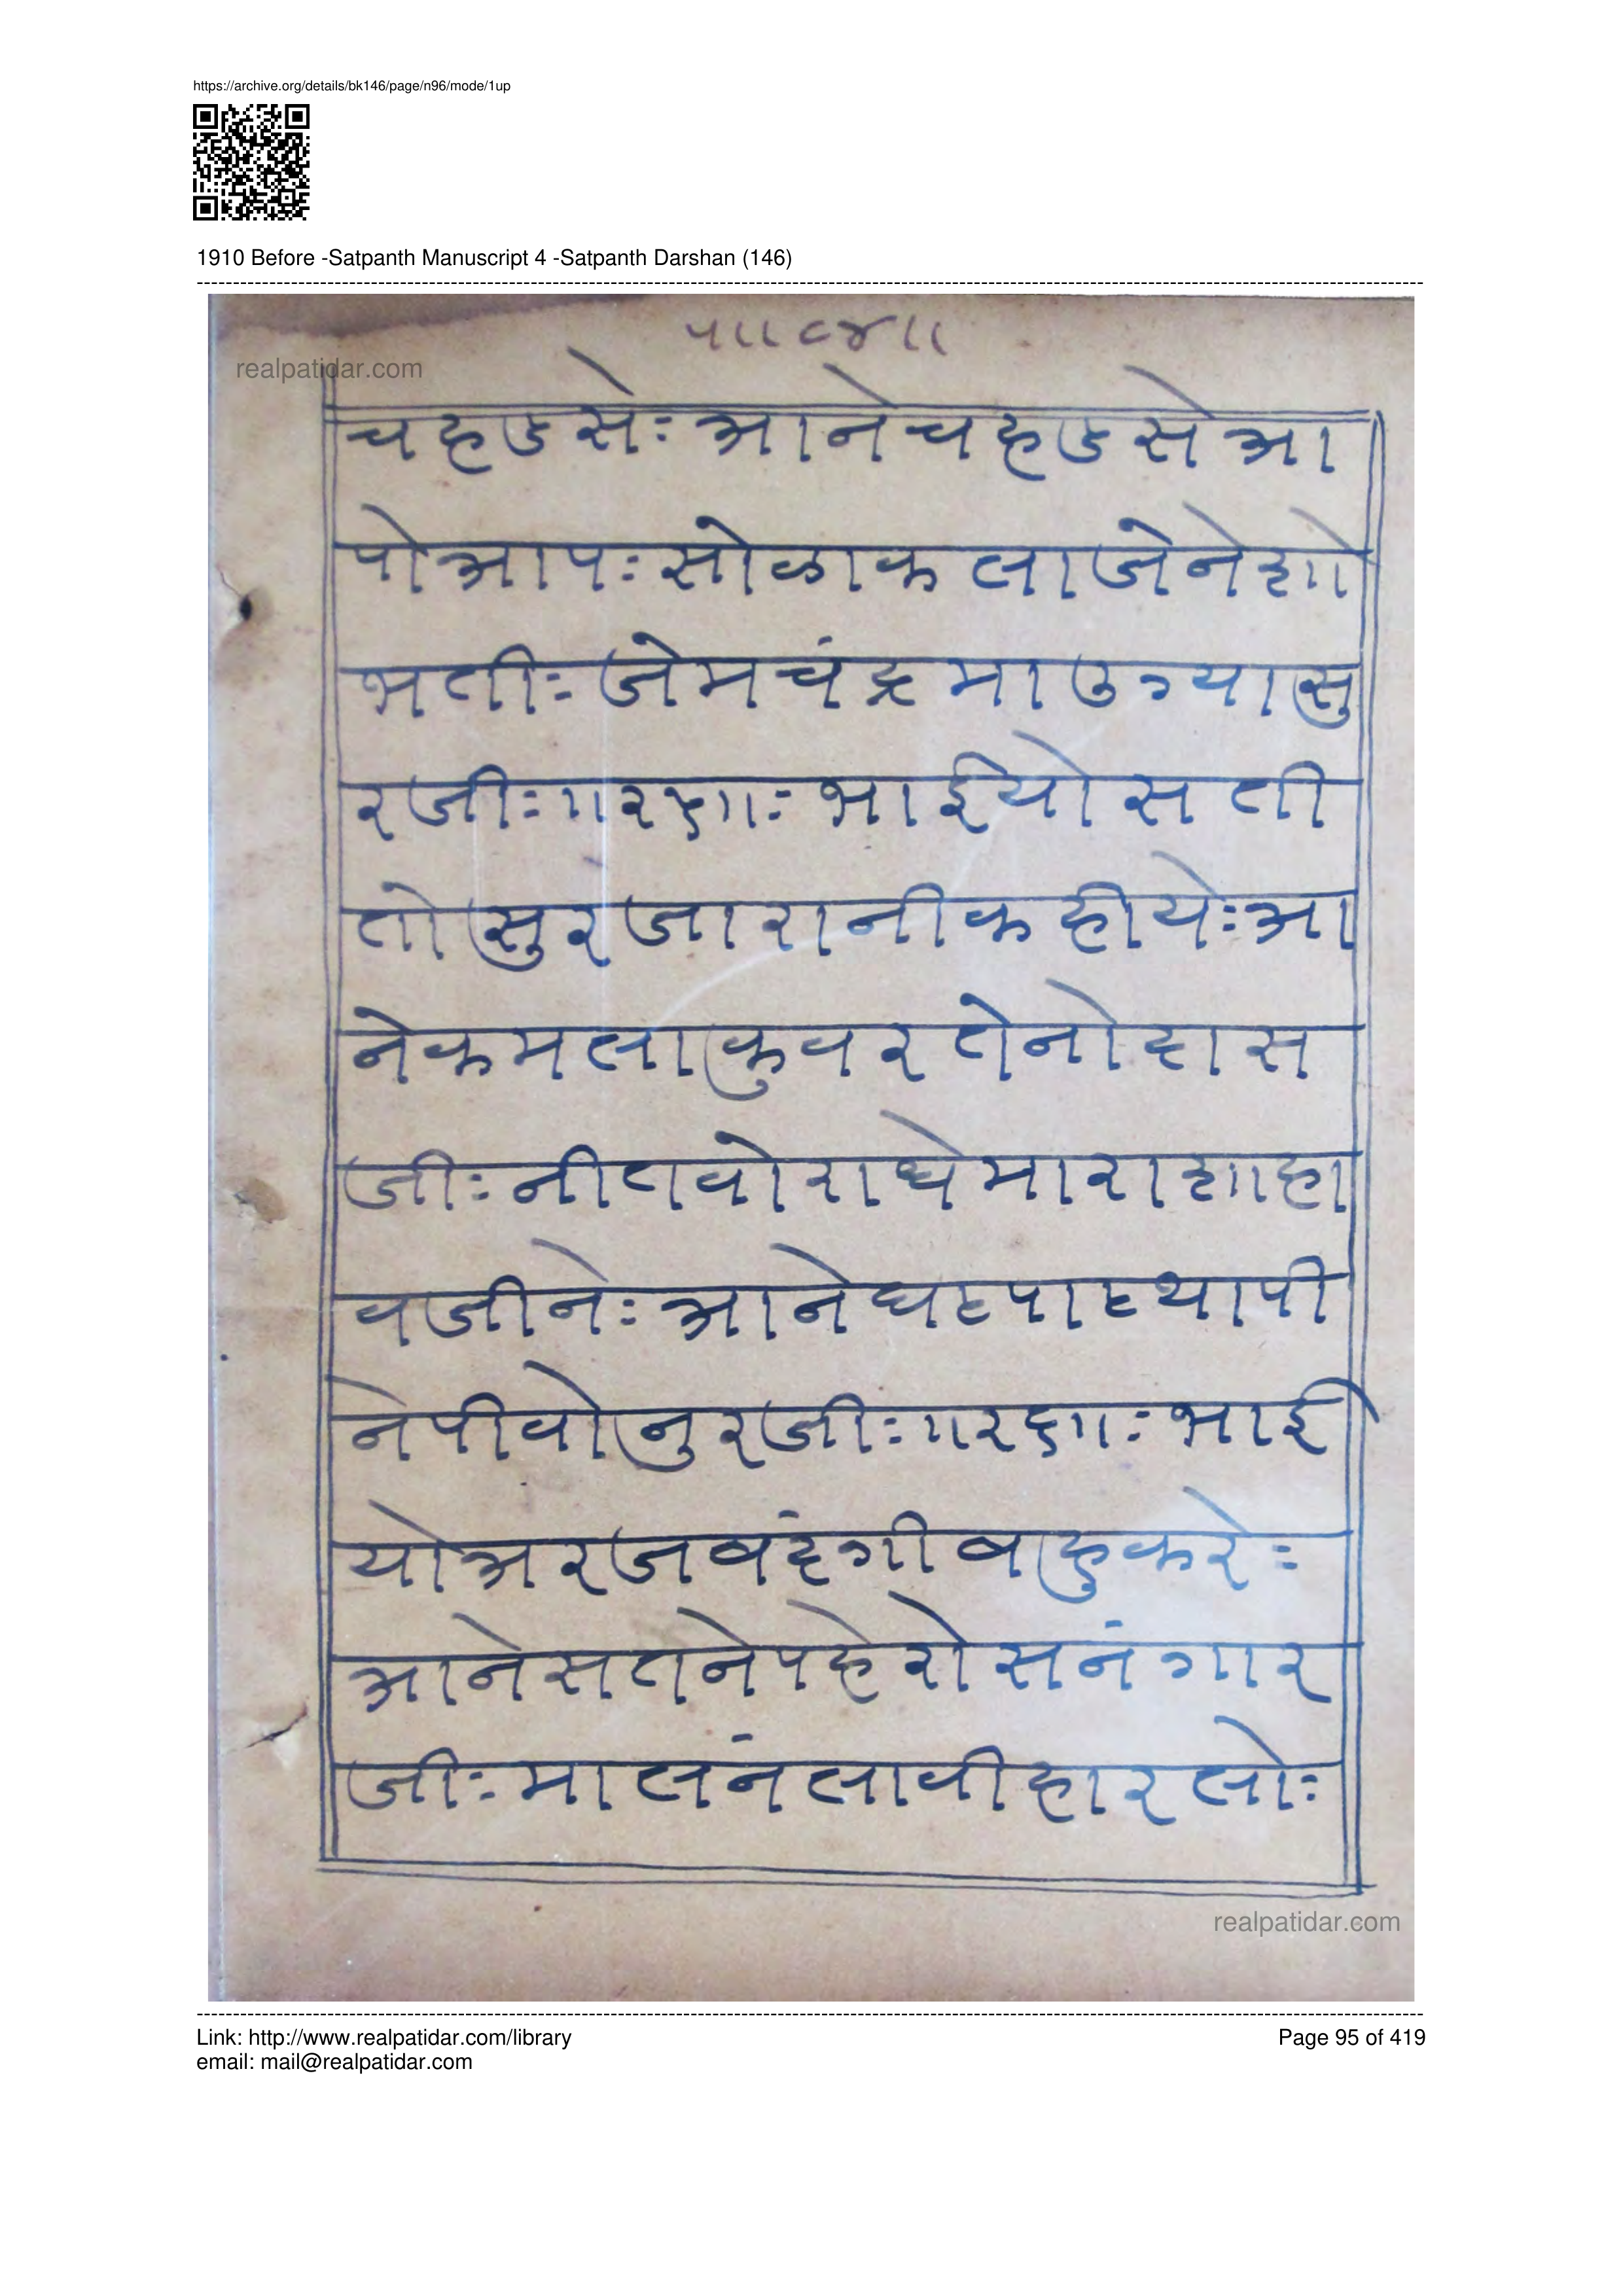 https://archive.org/details/bk146/page/n96/mode/1up
1910 Before -Satpanth Manuscript 4 -Satpanth Darshan (146)
प।।८४।।
realpatidar.com
चहडसेः आने चहडसे आ
पोआपः सोळाकला जेने शो
भतीः जेम चंद्रमा उग्या सु
रजीः ।।२६।।ः भाईयो सती
तो सुरजा रानी कहीयेः आ
ने कमला कुवर तेनो दास
जीः नीतवो राधे मारा शाहा
वजीनेः आने घटपाट थापी
ने पीवो नुरजीः ।।२७।।ः भाई
यो अरज बंदगी बाहु करेः
आने सतने पहेरो सनंगार
जीः मालनं लावी हार लोः
realpatidar.com
Link: http://www.realpatidar.com/library
email: mail@realpatidar.com
Page 95 of 419